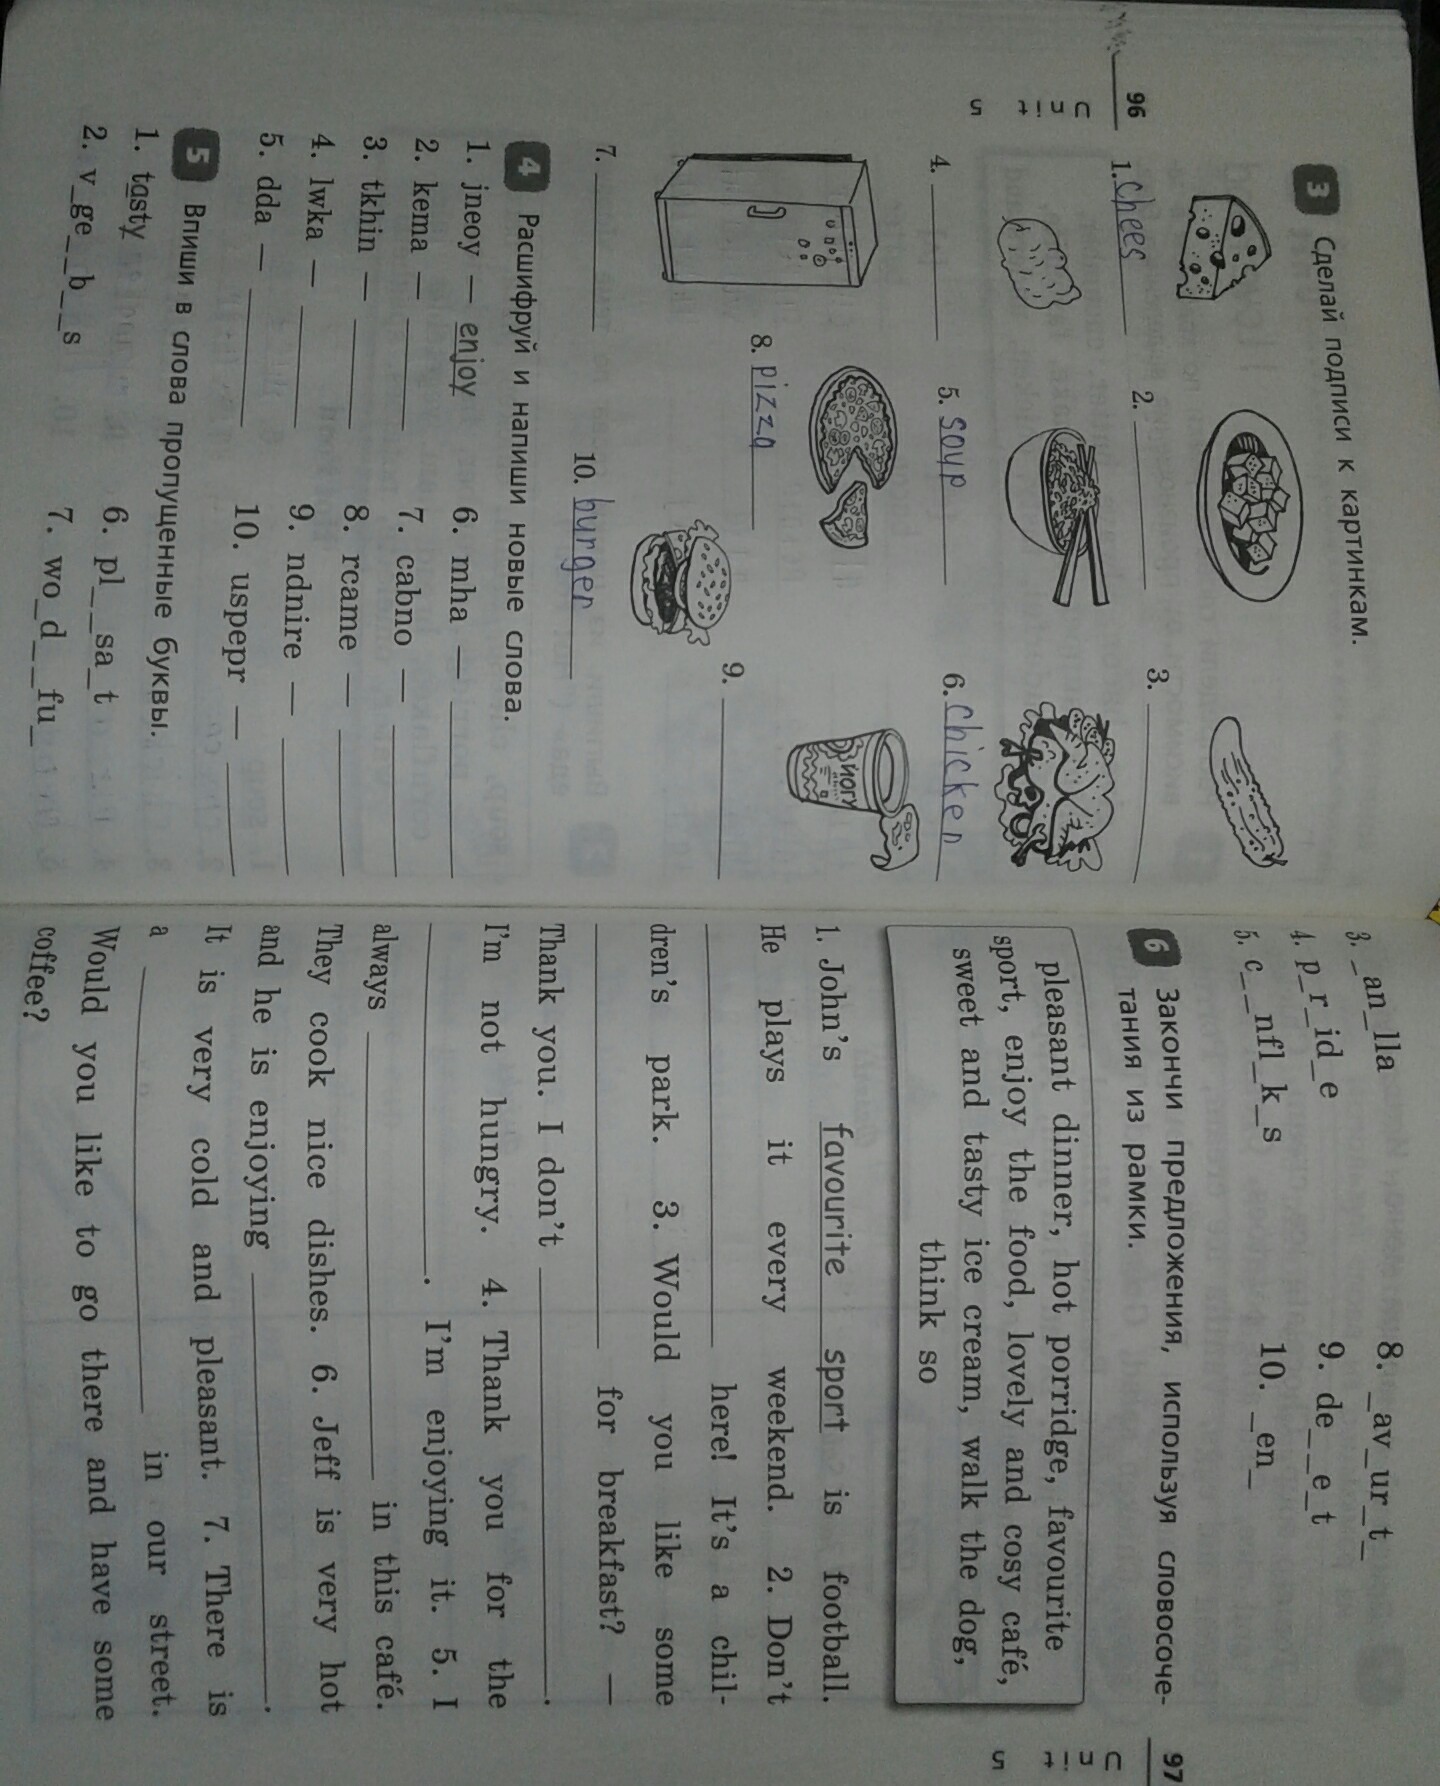 3 Сделай подписи к картинкам.
1. Chees
2.
3.
4.
5. soup
6. Chicken
ЙОГУ
7.
8. pizza
9.
10. burger
4 Расшифруй и напиши новые слова.
1. jneoy — enjoy
2. kema —
3. tkhin —
4. lwka —
5. dda —
6. mha —
7. cabno —
8. rcame —
9. ndnire —
10. uspepr —
5 Впиши в слова пропущенные буквы.
1. tasty
2. v_ge__b__s
6. pl__sa_t
7. wo_d__fu_
96
3. _an_lla
4. p_r_id_e
5. c__nfl_k_s
8. _av_ur_t_
9. de__e_t
10. _en_
6 Закончи предложения, используя словосоче-
тания из рамки.
pleasant dinner, hot porridge, favourite
sport, enjoy the food, lovely and cosy café,
sweet and tasty ice cream, walk the dog,
think so
1. John's favourite sport is football.
He plays it every weekend. 2. Don't
____ here! It's a chil-
dren's park. 3. Would you like some
____ for breakfast? —
Thank you. I don't ____.
I'm not hungry. 4. Thank you for the
____. I'm enjoying it. 5. I
always ____ in this café.
They cook nice dishes. 6. Jeff is very hot
and he is enjoying ____.
It is very cold and pleasant. 7. There is
a ____ in our street.
Would you like to go there and have some
coffee?
97